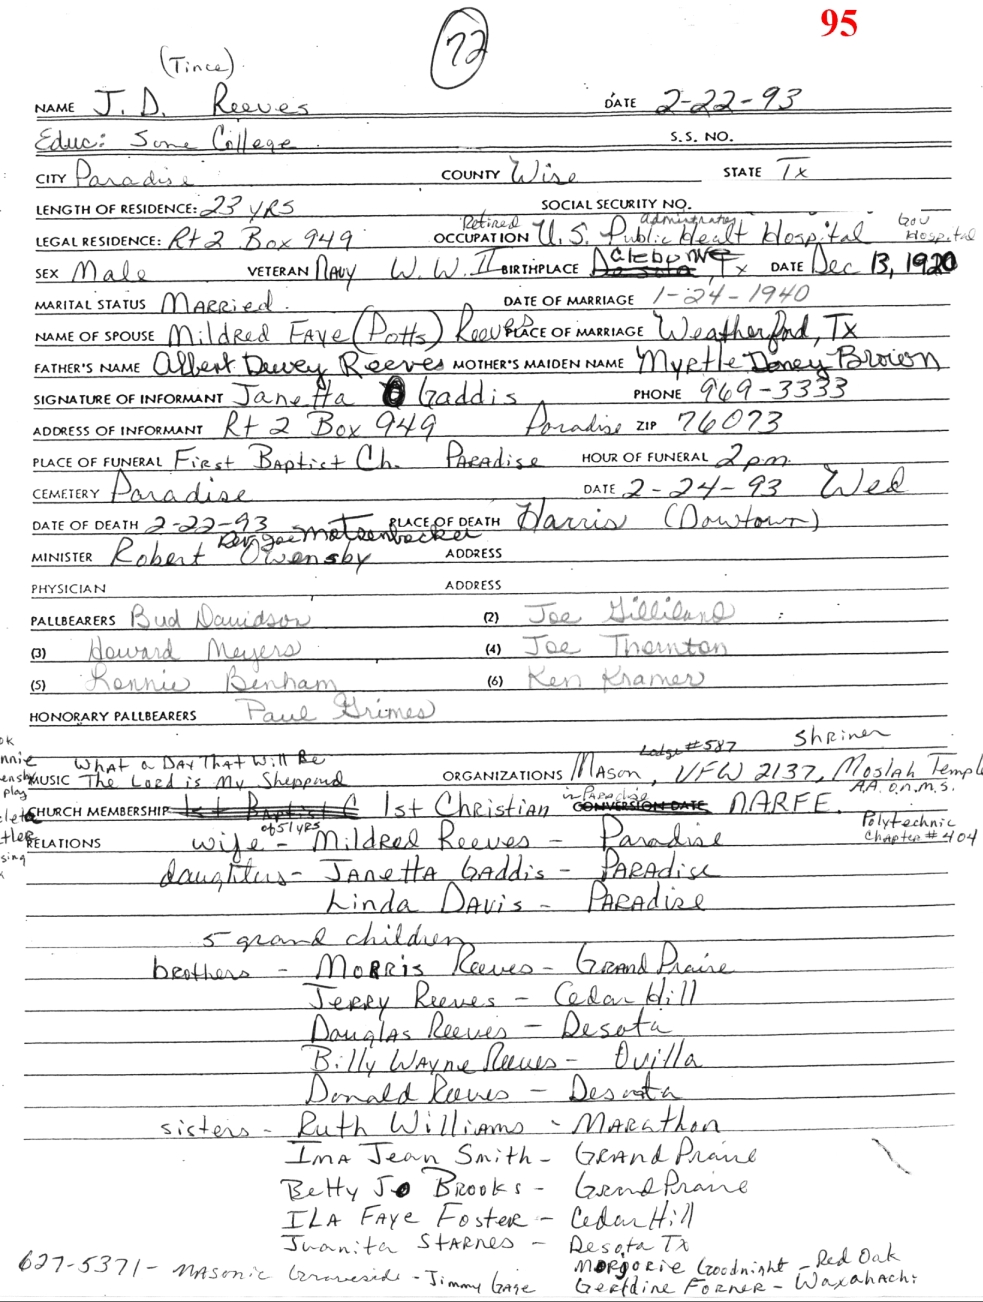 95
72
(Tince)
NAME J. D. Reeves DATE 2-22-93
Educ: Some College S.S. NO.
CITY Paradise COUNTY Wise STATE Tx
LENGTH OF RESIDENCE: 23 YRS SOCIAL SECURITY NO.
Retired Administrator Gov Hospital
LEGAL RESIDENCE: Rt 2 Box 949 OCCUPATION U.S. Public Healt Hospital
SEX Male VETERAN Navy W.W. II BIRTHPLACE Cleburne Desota, Tx DATE Dec 13, 1920
MARITAL STATUS MARRied. DATE OF MARRIAGE 1-24-1940
NAME OF SPOUSE Mildred FAye (Potts) Reeves PLACE OF MARRIAGE Weatherford, Tx
FATHER'S NAME Albert Dewey Reeves MOTHER'S MAIDEN NAME Myrtle Doney Brown
SIGNATURE OF INFORMANT Janetta Gaddis PHONE 969-3333
ADDRESS OF INFORMANT Rt 2 Box 949 Paradise ZIP 76073
PLACE OF FUNERAL First Baptist Ch. PARAdise HOUR OF FUNERAL 2pm.
CEMETERY Paradise DATE 2-24-93 Wed
DATE OF DEATH 2-22-93 PLACE OF DEATH Harris (Dowtown)
Rev Joe Motsenbocker
MINISTER Robert Owensby ADDRESS
PHYSICIAN ADDRESS
PALLBEARERS Bud Davidson (2) Joe Gilliland
(3) Howard Meyers (4) Joe Thornton
(5) Ronnie Benham (6) Ken Kramer
HONORARY PALLBEARERS Paul Grimes
What a Day That Will Be Lodge #587 Shriner
MUSIC The Lord is My Sheppard ORGANIZATIONS MASON, VFW 2137, Moslah Temple
A.A.O.N.M.S.
CHURCH MEMBERSHIP 1st Baptist C 1st Christian in Paradise CONVERSION DATE NARFE
of 51 yrs Polytechnic Chapter #404
RELATIONS wife - Mildred Reeves - Paradise
daughters - JANettA Gaddis - PARAdise
Linda DAvis - PARAdise
5 grand children
brothers - MoRRis Reeves - GRAND Praire
Jerry Reeves - Cedar Hill
DouglAs Reeves - Desota
Billy WAyne Reeves - Ovilla
Donald Reeves - Desota
sisters - Ruth Williams - MARathon
Ima Jean Smith - GRANd Praire
Betty Jo BRooks - Grand Praire
ILA FAYE Foster - Cedar Hill
Juanita STARNES - Desota Tx
Marjorie Goodnight - Red Oak
627-5371 - MASONic Graveside - Jimmy Gage
Geraldine FORNER - Waxahachi